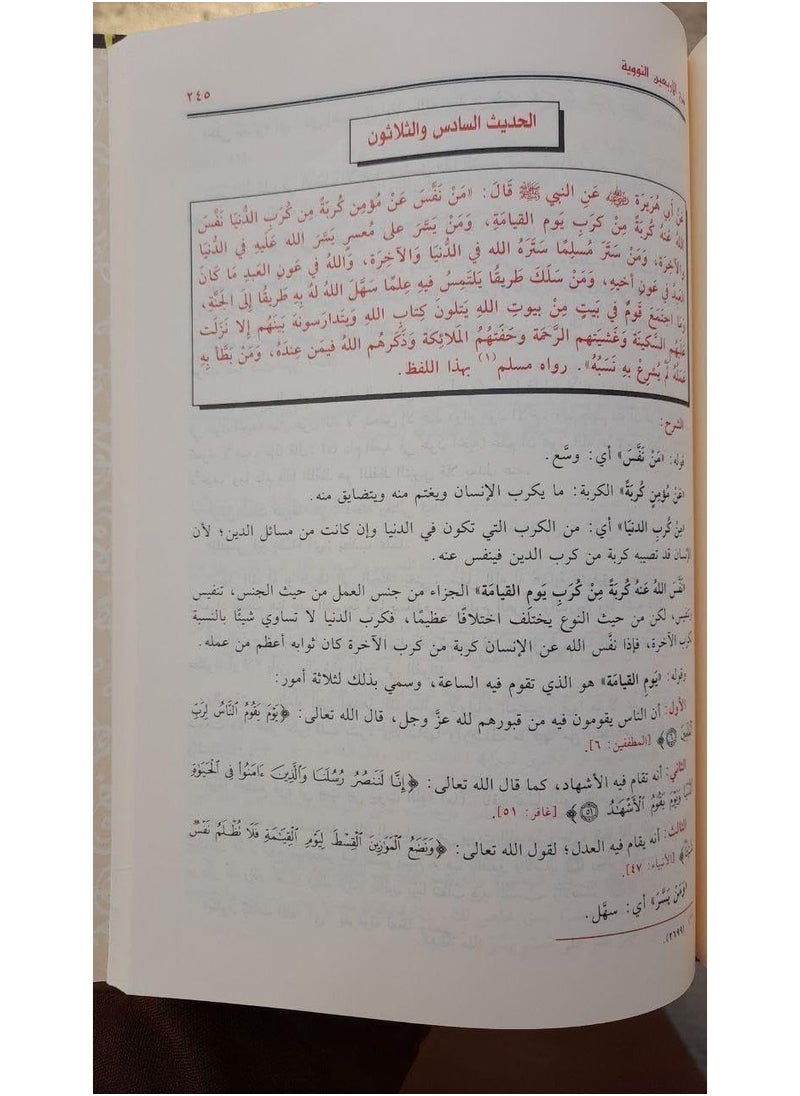 الأربعين النووية
٢٤٥
الحديث السادس والثلاثون
عَن أَبي هُرَيرَة رضي الله عنه عَنِ النبي ﷺ قَالَ: «مَنْ نَفَّسَ عَنْ مُؤمِن كُربَةً مِن كُرَبِ الدُّنيَا نَفَّسَ
اللهُ عَنهُ كُربَةً مِنْ كرَبِ يَوم القيامَةِ، وَمَنْ يَسَّرَ على مُعسرٍ يَسَّرَ الله عَلَيهِ في الدُّنيَا
والآخِرَة، وَمَنْ سَتَرَ مُسلِمًا سَتَرَهُ الله في الدُّنيَا وَالآخِرَة، وَاللهُ في عَونِ العَبدِ مَا كَانَ
العَبدُ في عَونِ أخيهِ، وَمَنْ سَلَكَ طَريقًا يَلتَمِسُ فيهِ عِلمًا سَهَّلَ اللهُ لهُ بِهِ طَريقًا إلى الجَنَّةِ،
وَمَا اجتَمَعَ قَومٌ في بَيتٍ مِنْ بيوتِ اللهِ يَتلونَ كِتابِ اللهِ ويَتَدارَسونهُ بَينَهُم إلا نَزَلَت
عَلَيهُم السَّكينَة وَغَشيَتهم الرَّحمَة وحَفَتهُمُ المَلائِكة وَذَكَرهُم اللهُ فيمَن عِندَهُ، وَمَنْ بَطَّأ بِهِ
عَمَلُهُ لَمْ يُسْرِعْ بِهِ نَسَبُهُ». رواه مسلم(١) بهذا اللفظ.
الشرح:
قوله: «مَنْ نَفَّسَ» أي: وسَّع.
«عَنْ مُؤمِنٍ كُربَةً» الكربة: ما يكرب الإنسان ويغتم منه ويتضايق منه.
«مِنْ كُرَبِ الدنيَا» أي: من الكرب التي تكون في الدنيا وإن كانت من مسائل الدين؛ لأن
الإنسان قد تصيبه كربة من كرب الدين فينفس عنه.
«نَفَّسَ اللهُ عَنهُ كُربَةً مِنْ كُرَبِ يَومِ القيامَة» الجزاء من جنس العمل من حيث الجنس، تنفيس
وتنفيس، لكن من حيث النوع يختلف اختلافًا عظيمًا، فكرب الدنيا لا تساوي شيئًا بالنسبة
لكرب الآخرة، فإذا نفَّس الله عن الإنسان كربة من كرب الآخرة كان ثوابه أعظم من عمله.
وقوله: «يَومِ القيامَة» هو الذي تقوم فيه الساعة، وسمي بذلك لثلاثة أمور:
الأول: أن الناس يقومون فيه من قبورهم لله عزَّ وجل، قال الله تعالى: ﴿يَوْمَ يَقُومُ ٱلنَّاسُ لِرَبِّ
ٱلْعَٰلَمِينَ ٦﴾ [المطففين: ٦].
الثاني: أنه تقام فيه الأشهاد، كما قال الله تعالى: ﴿إِنَّا لَنَنصُرُ رُسُلَنَا وَٱلَّذِينَ ءَامَنُوا۟ فِى ٱلْحَيَوٰةِ
ٱلدُّنْيَا وَيَوْمَ يَقُومُ ٱلْأَشْهَٰدُ ٥١﴾ [غافر: ٥١].
الثالث: أنه يقام فيه العدل؛ لقول الله تعالى: ﴿وَنَضَعُ ٱلْمَوَٰزِينَ ٱلْقِسْطَ لِيَوْمِ ٱلْقِيَٰمَةِ فَلَا تُظْلَمُ نَفْسٌ
شَيْـًٔا﴾ [الأنبياء: ٤٧].
«وَمَنْ يَسَّرَ» أي: سهَّل.
(٢٦٩٩).